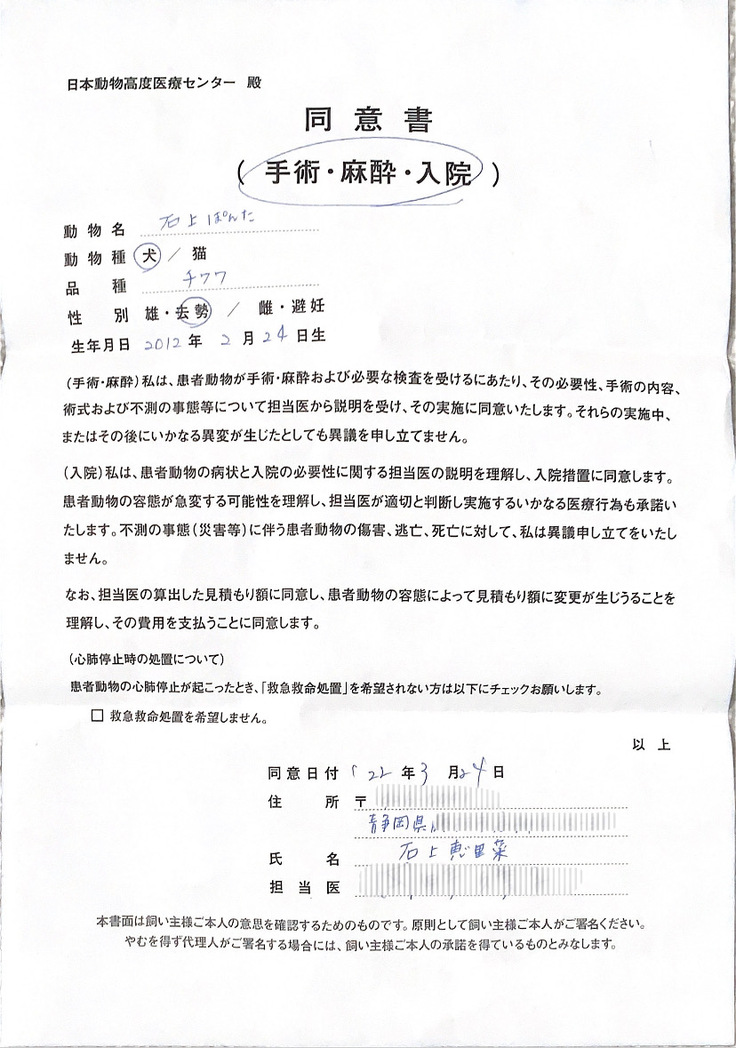 日本動物高度医療センター 殿
同意書
( 手術・麻酔・入院 )
動物名 石上ぽんた
動物種 犬 / 猫
品種 チワワ
性別 雄・去勢 / 雌・避妊
生年月日 2012年 2月 24日生
(手術・麻酔)私は、患者動物が手術・麻酔および必要な検査を受けるにあたり、その必要性、手術の内容、
術式および不測の事態等について担当医から説明を受け、その実施に同意いたします。それらの実施中、
またはその後にいかなる異変が生じたとしても異議を申し立てません。
(入院)私は、患者動物の病状と入院の必要性に関する担当医の説明を理解し、入院措置に同意します。
患者動物の容態が急変する可能性を理解し、担当医が適切と判断し実施するいかなる医療行為も承諾い
たします。不測の事態(災害等)に伴う患者動物の傷害、逃亡、死亡に対して、私は異議申し立てをいたし
ません。
なお、担当医の算出した見積もり額に同意し、患者動物の容態によって見積もり額に変更が生じうることを
理解し、その費用を支払うことに同意します。
(心肺停止時の処置について)
患者動物の心肺停止が起こったとき、「救急救命処置」を希望されない方は以下にチェックお願いします。
□ 救急救命処置を希望しません。
以上
同意日付 '22年3月24日
住所 〒
静岡県
氏名 石上恵里菜
担当医
本書面は飼い主様ご本人の意思を確認するためのものです。原則として飼い主様ご本人がご署名ください。
やむを得ず代理人がご署名する場合には、飼い主様ご本人の承諾を得ているものとみなします。